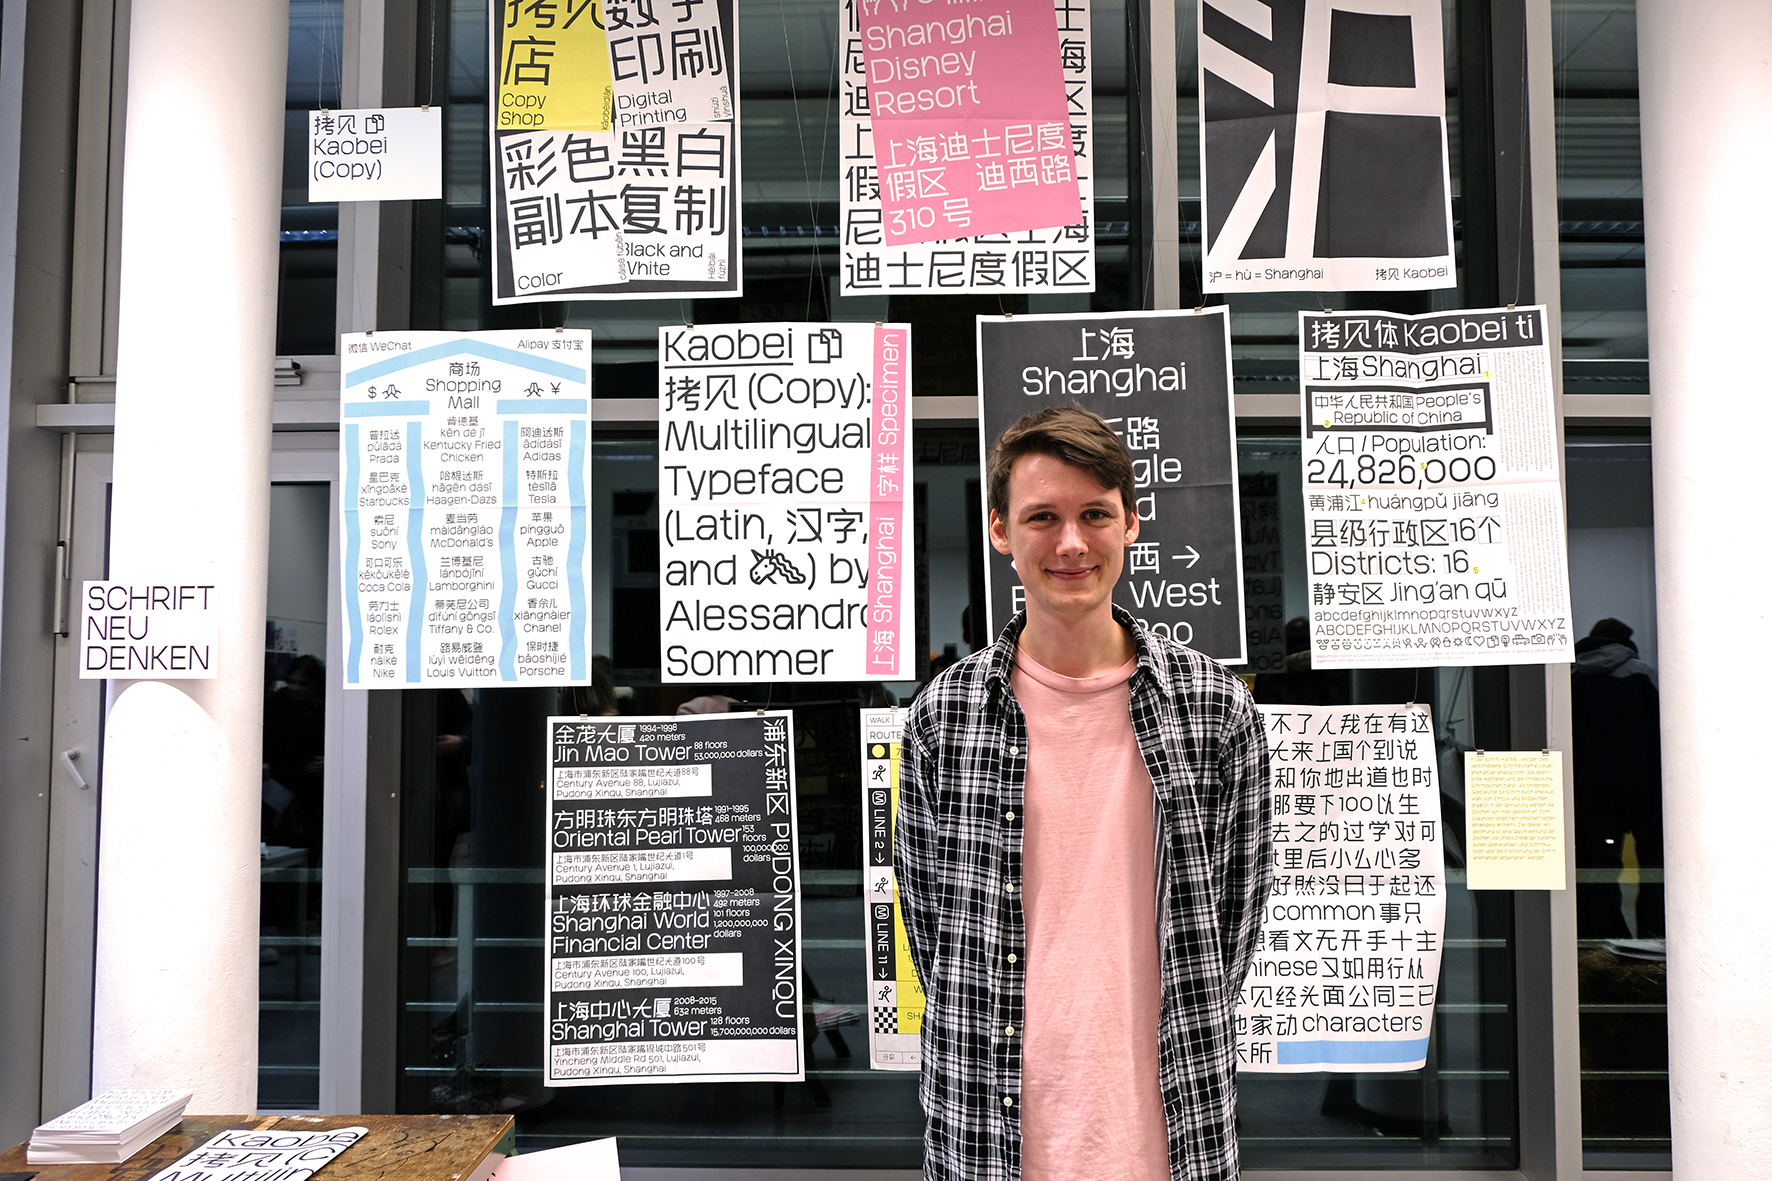 拷贝
Kaobei
(Copy)
店
Copy
Shop
kǎobèidiàn
印刷
Digital
Printing
shùzì
yìnshuā
彩色
副本
Color
黑白
复制
Black and
White
Hēibái
fùzhì
Shanghai
Disney
Resort
上海迪士尼度
假区 迪西路
310 号
迪士尼度假区
沪 = hù = Shanghai
拷贝 Kaobei
微信 WeChat
Alipay 支付宝
商场
Shopping
Mall
$
¥
普拉达
pǔlādá
Prada
星巴克
xīngbākè
Starbucks
索尼
suǒní
Sony
可口可乐
kěkǒukělè
Coca Cola
劳力士
láolìshì
Rolex
耐克
nàikè
Nike
肯德基
kěn dé jī
Kentucky Fried
Chicken
哈根达斯
hāgēn dásī
Haagen-Dazs
麦当劳
màidāngláo
McDonald's
兰博基尼
lánbójīní
Lamborghini
蒂芙尼公司
dìfúní gōngsī
Tiffany & Co.
路易威登
lùyì wēidēng
Louis Vuitton
阿迪达斯
ādídásī
Adidas
特斯拉
tèsīlā
Tesla
苹果
píngguǒ
Apple
古驰
gǔchí
Gucci
香奈儿
xiāngnàier
Chanel
保时捷
bǎoshíjié
Porsche
Kaobei
拷贝 (Copy):
Multilingual
Typeface
(Latin, 汉字,
and ) by
Alessandro
Sommer
上海 Shanghai 字样 Specimen
上海
Shanghai
路
西 →
West
拷贝体 Kaobei ti
上海 Shanghai
中华人民共和国 People's
Republic of China
人口 / Population:
24,826,000
黄浦江 huángpǔ jiāng
县级行政区16个
Districts: 16
静安区 Jing'an qū
abcdefghijklmnopqrstuvwxyz
ABCDEFGHIJKLMNOPQRSTUVWXYZ
SCHRIFT
NEU
DENKEN
金茂大厦 1994–1998
420 meters
Jin Mao Tower 88 floors
53,000,000 dollars
上海市浦东新区陆家嘴世纪大道88号
Century Avenue 88, Lujiazui,
Pudong Xinqu, Shanghai
方明珠东方明珠塔 1991–1995
468 meters
Oriental Pearl Tower 153
floors
100,000
dollars
上海市浦东新区陆家嘴世纪大道1号
Century Avenue 1, Lujiazui,
Pudong Xinqu, Shanghai
上海环球金融中心 1997–2008
492 meters
Shanghai World 101 floors
1,200,000,000
Financial Center dollars
上海市浦东新区陆家嘴世纪大道100号
Century Avenue 100, Lujiazui,
Pudong Xinqu, Shanghai
上海中心大厦 2008–2015
632 meters
Shanghai Tower 128 floors
15,700,000,000 dollars
上海市浦东新区陆家嘴银城中路501号
Yincheng Middle Rd 501, Lujiazui,
Pudong Xinqu, Shanghai
浦东新区 PUDONG XINQU
WALK
ROUTE
LINE 2 →
LINE 11 →
不了人我在有这
大来上国个到说
和你地出道也时
那要下100以生
去之的过学对可
里后小么心多
好然没日于起还
common 事只
想看文无开手十主
hinese 又如用行从
本见经头面公同三已
他家动 characters
长所
拷贝 (C